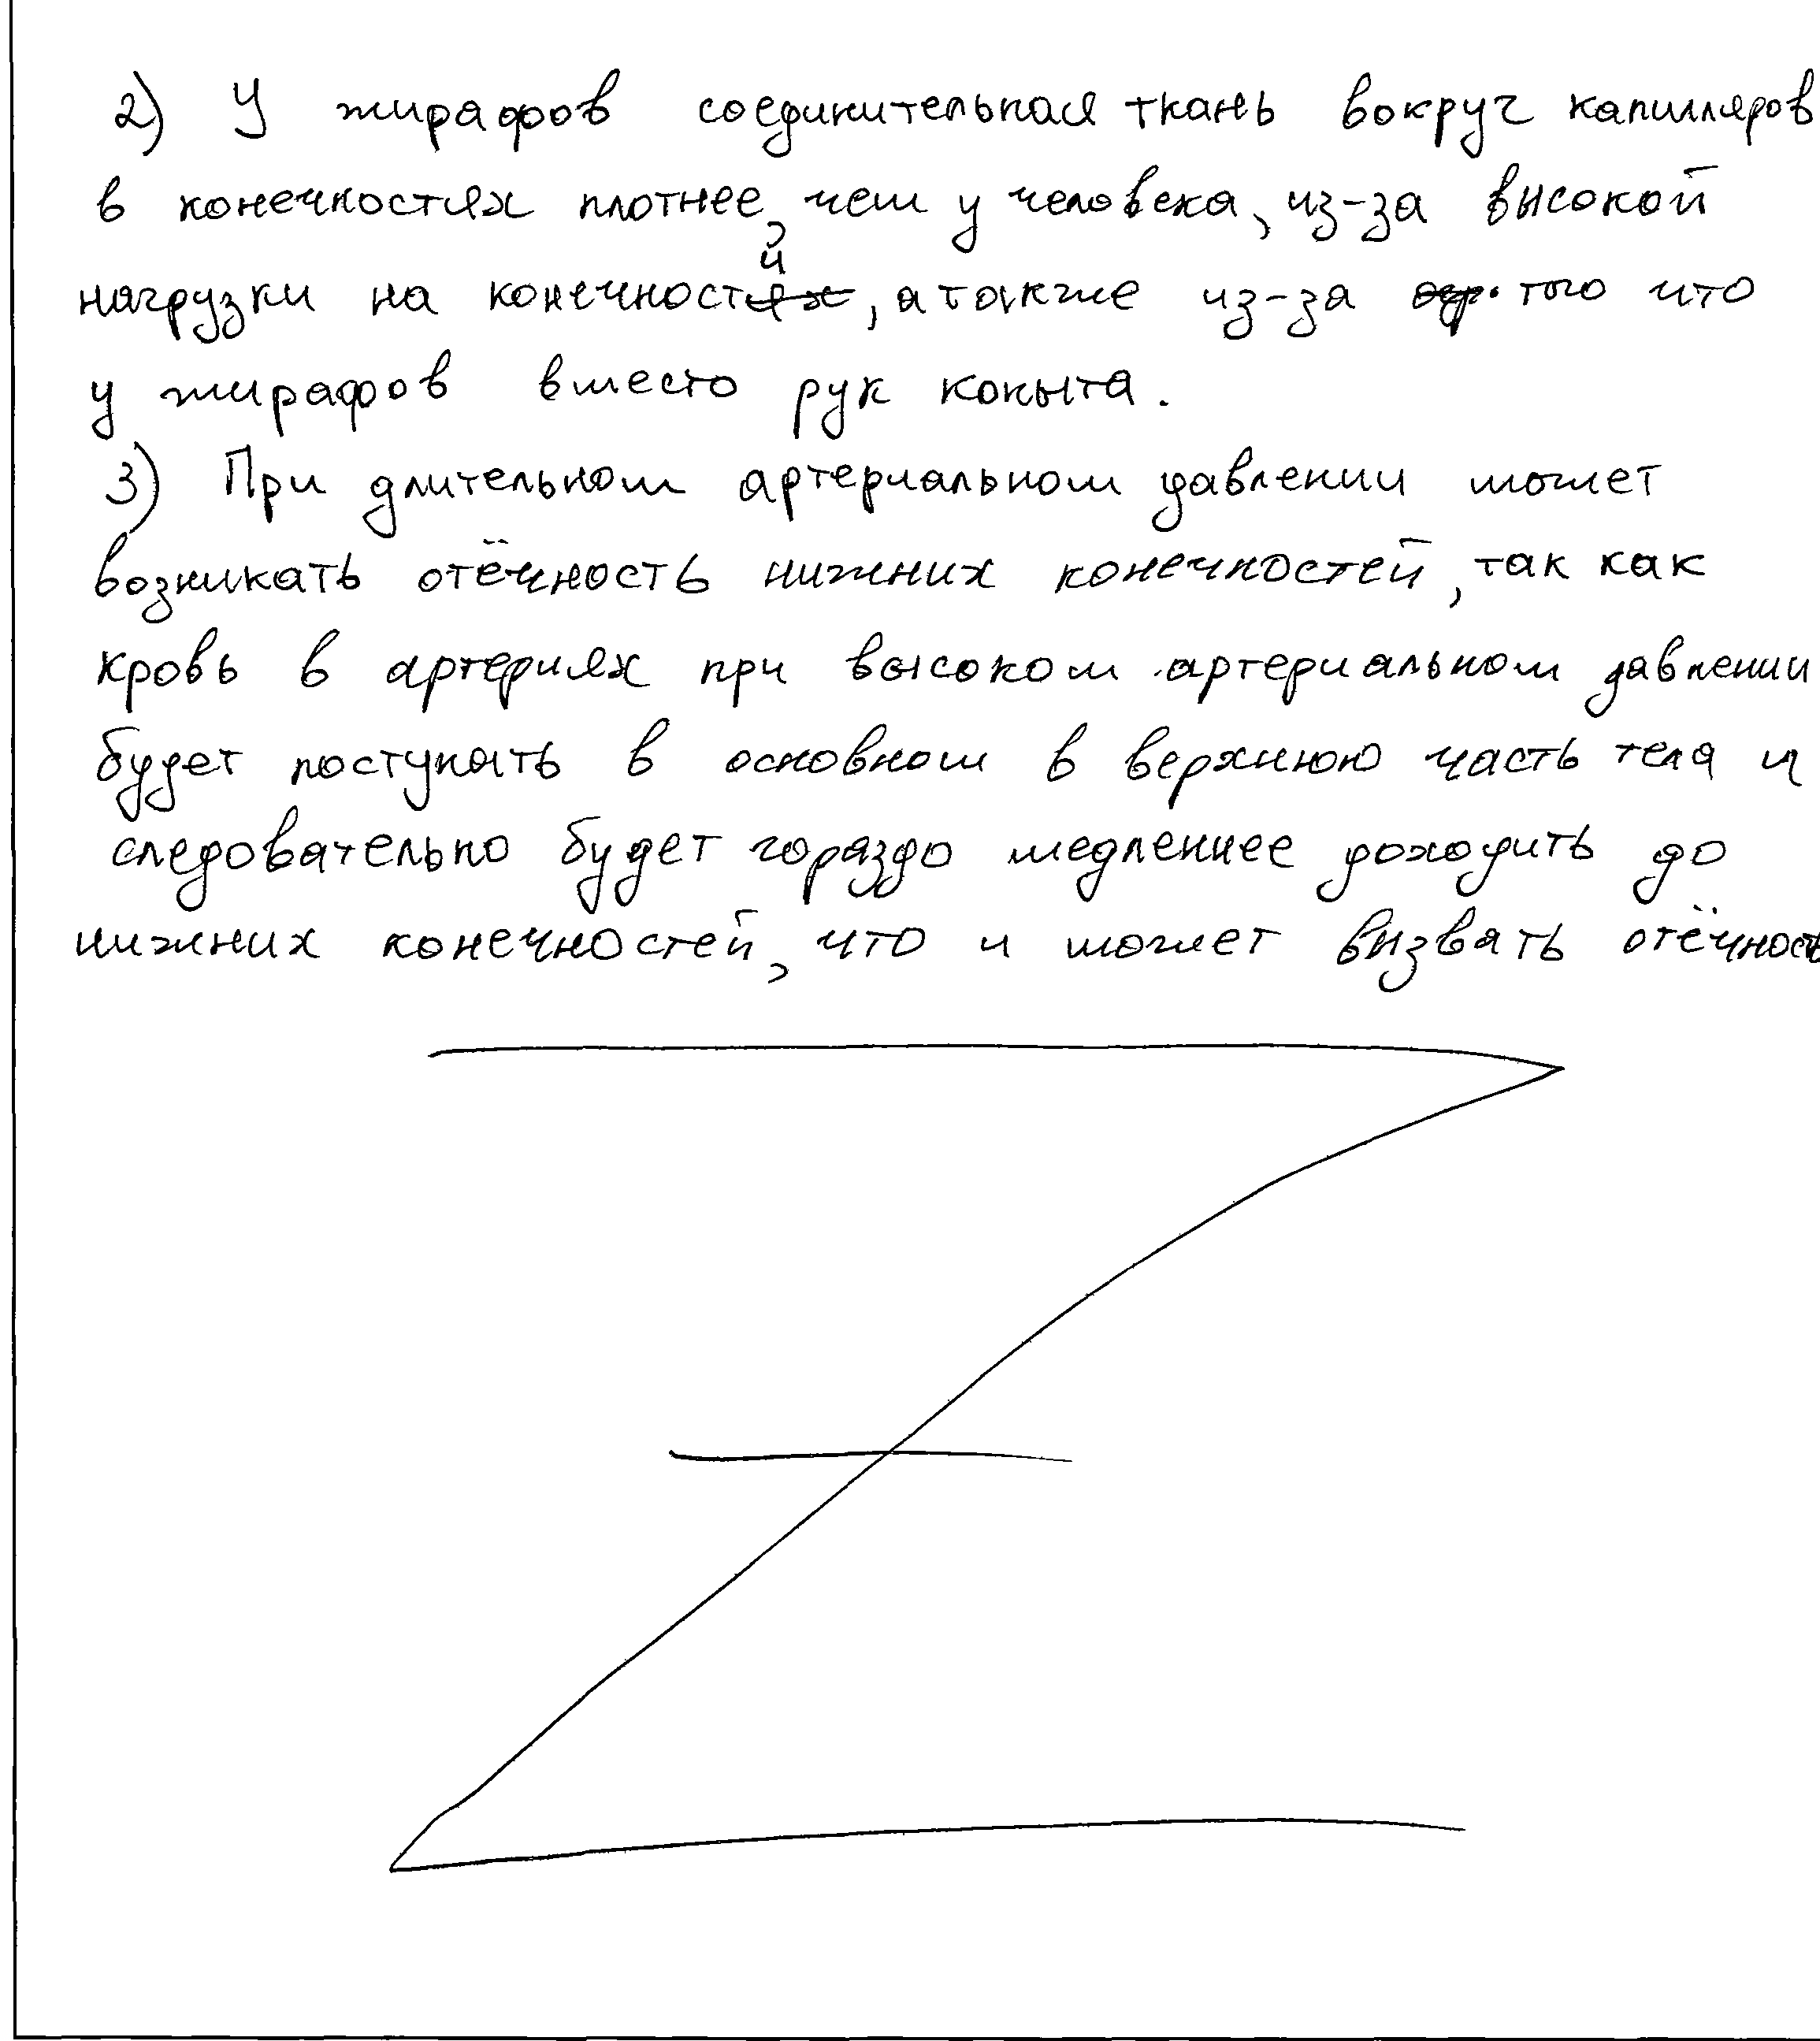 2) У жирафов соединительная ткань вокруг капилляров
в конечностях плотнее, чем у человека, из-за высокой
нагрузки на конечности, а также из-за того что
у жирафов вместо рук копыта.
3) При длительном артериальном давлении может
возникать отёчность нижних конечностей, так как
кровь в артериях при высоком артериальном давлении
будет поступать в основном в верхнюю часть тела и
следовательно будет гораздо медленнее доходить до
нижних конечностей, что и может вызвать отёчность